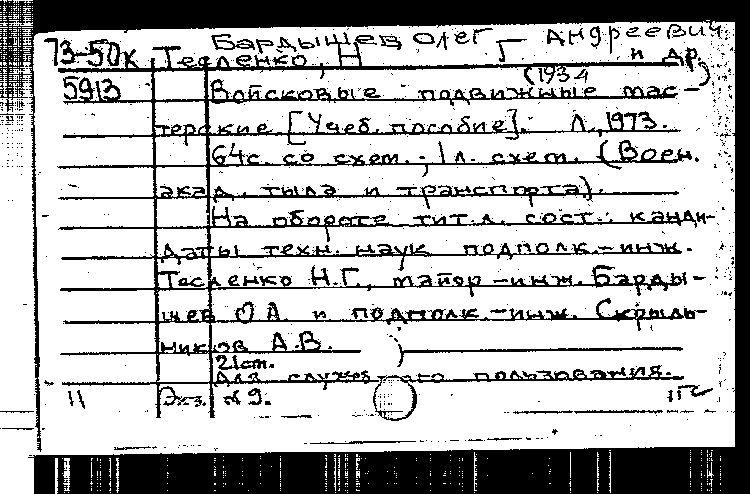 Бардышев, Олег Андреевич
73-50к Тесленко, Н и др.
(1934
5913 Войсковые подвижные мас-
терские [Учеб. пособие]. Л., 1973.
64с. со схем.; 1л. схем. (Воен.
акад. тыла и транспорта).
На обороте тит.л. сост.: канди-
даты техн. наук подполк.-инж.
Тесленко Н.Г., майор-инж. Барды-
шев О.А. и подполк.-инж. Скрыль-
ников А.В.
21ст.
Для служебного пользования.
11 Экз. №9.